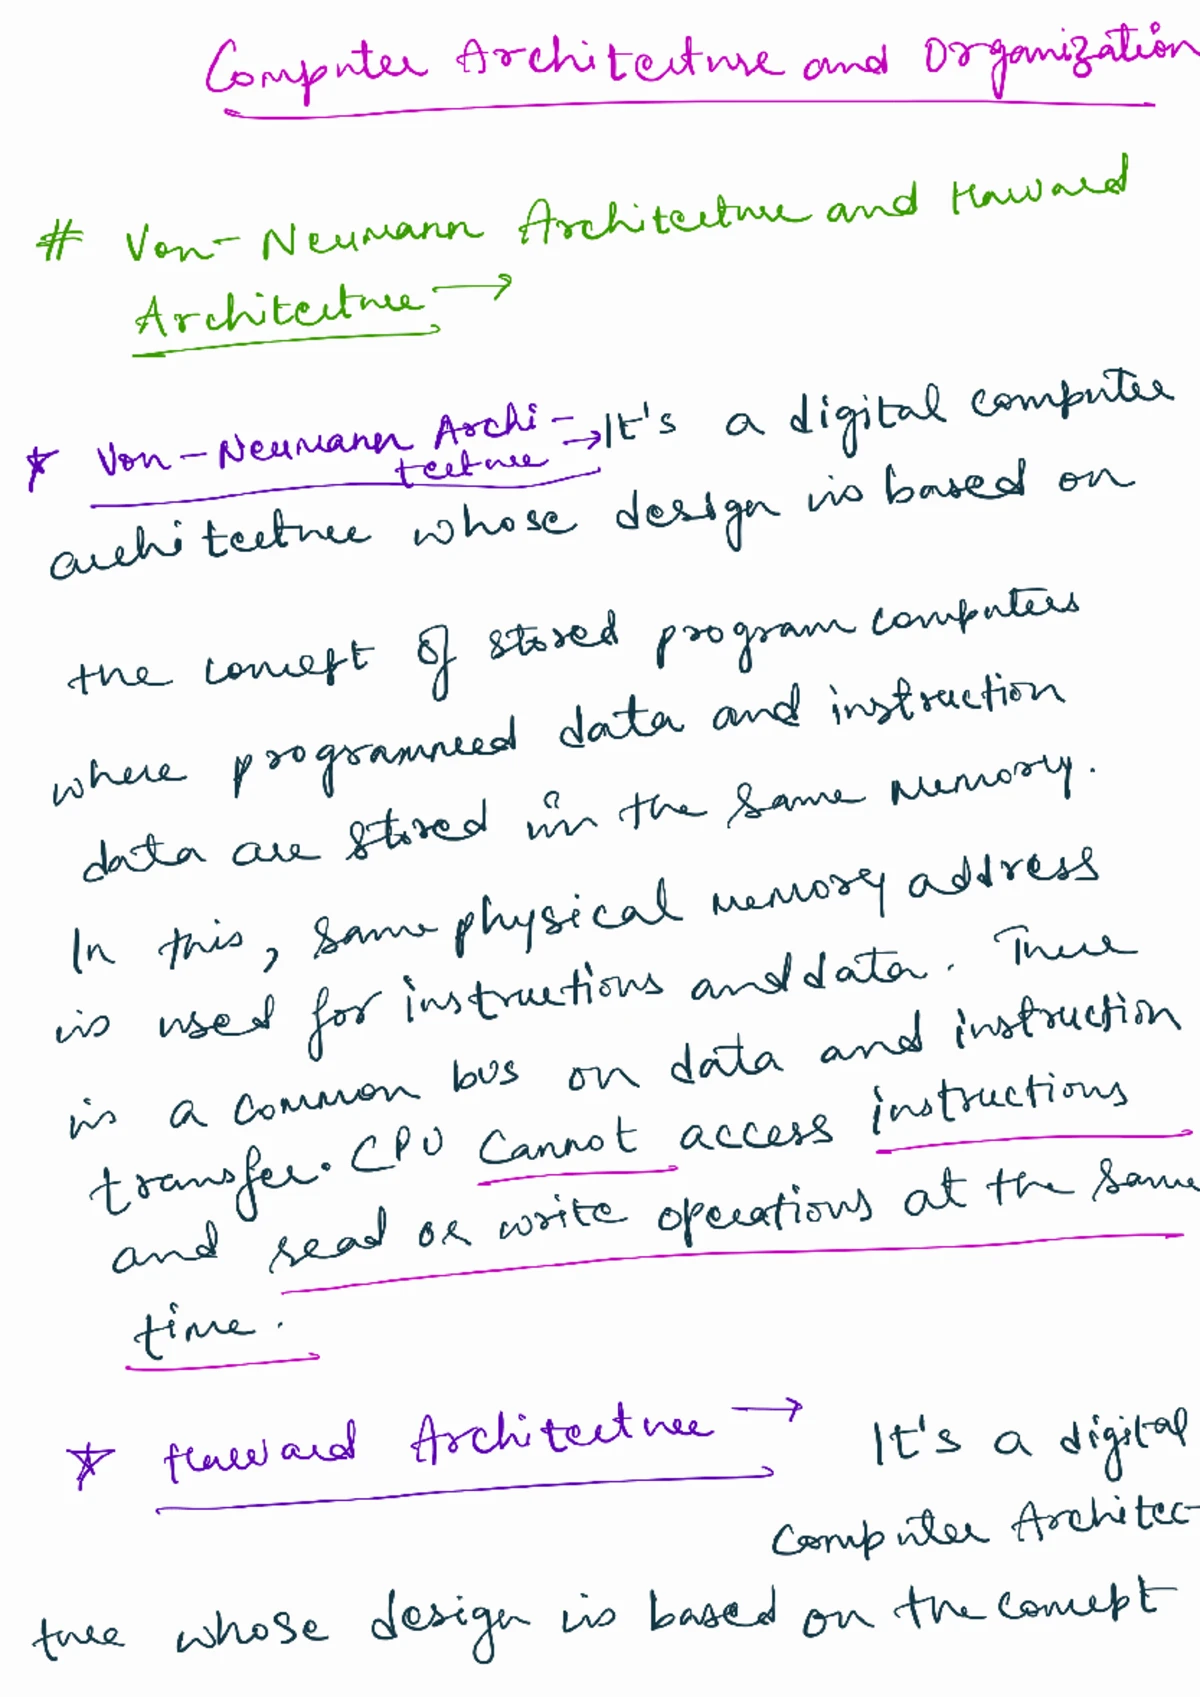 Computer Architecture and Organization
# Von-Neumann Architecture and Harvard
Architecture →
* Von-Neumann Archi-
tecture → It's a digital computer
architecture whose design is based on
the concept of stored program computers
where programmed data and instruction
data are stored in the same memory.
In this, same physical memory address
is used for instructions and data. There
is a common bus on data and instruction
transfer. CPU cannot access instructions
and read or write operations at the same
time.
* Harvard Architecture → It's a digital
Computer Architec-
ture whose design is based on the concept